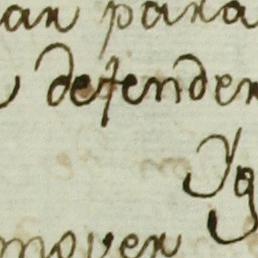 ar para
defender
mover